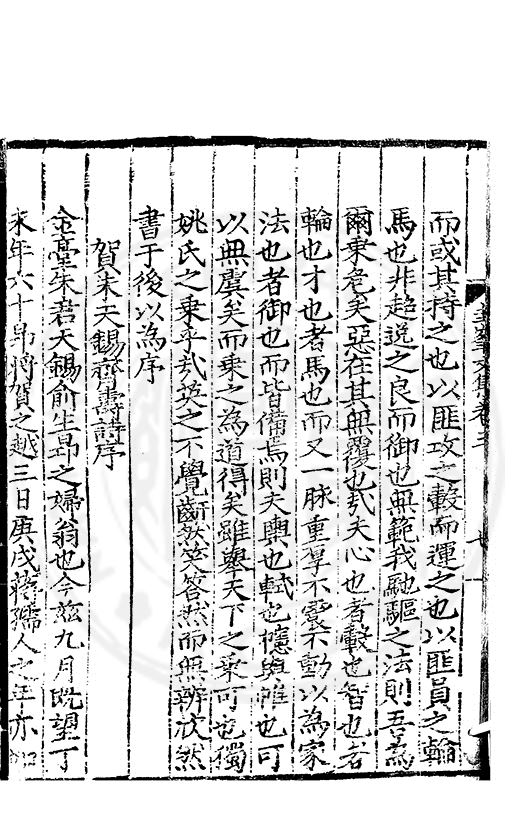 而或其持之也以匪攻之轂而運之也以匪員之輪
馬也非超説之良而御也無範我馳驅之法則吾為
爾乘危矣惡在其無覆也哉夫心也者轂也智也者
輪也才也者馬也而又一脉重厚不震不動以為家
法也者御也而皆備焉則夫輿也軾也與帷也可
以無虞矣而乘之為道得矣雖舉天下之乘可也獨
姚氏之乘乎哉英之不覺齗然笑答然而無辨次然
書于後以為序
賀朱天錫齊壽詩序
金臺朱君天錫俞生昂之婦翁也今茲九月既望丁
来年六十昂將賀之越三日庚戌蔣孺人之年亦如
文集卷五